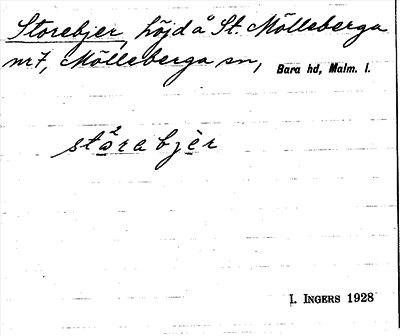 Storebjer, höjd å St. Mölleberga
nr 7, Mölleberga sn, Bara hd, Malm. l.
stårabjèr
I. INGERS 1928